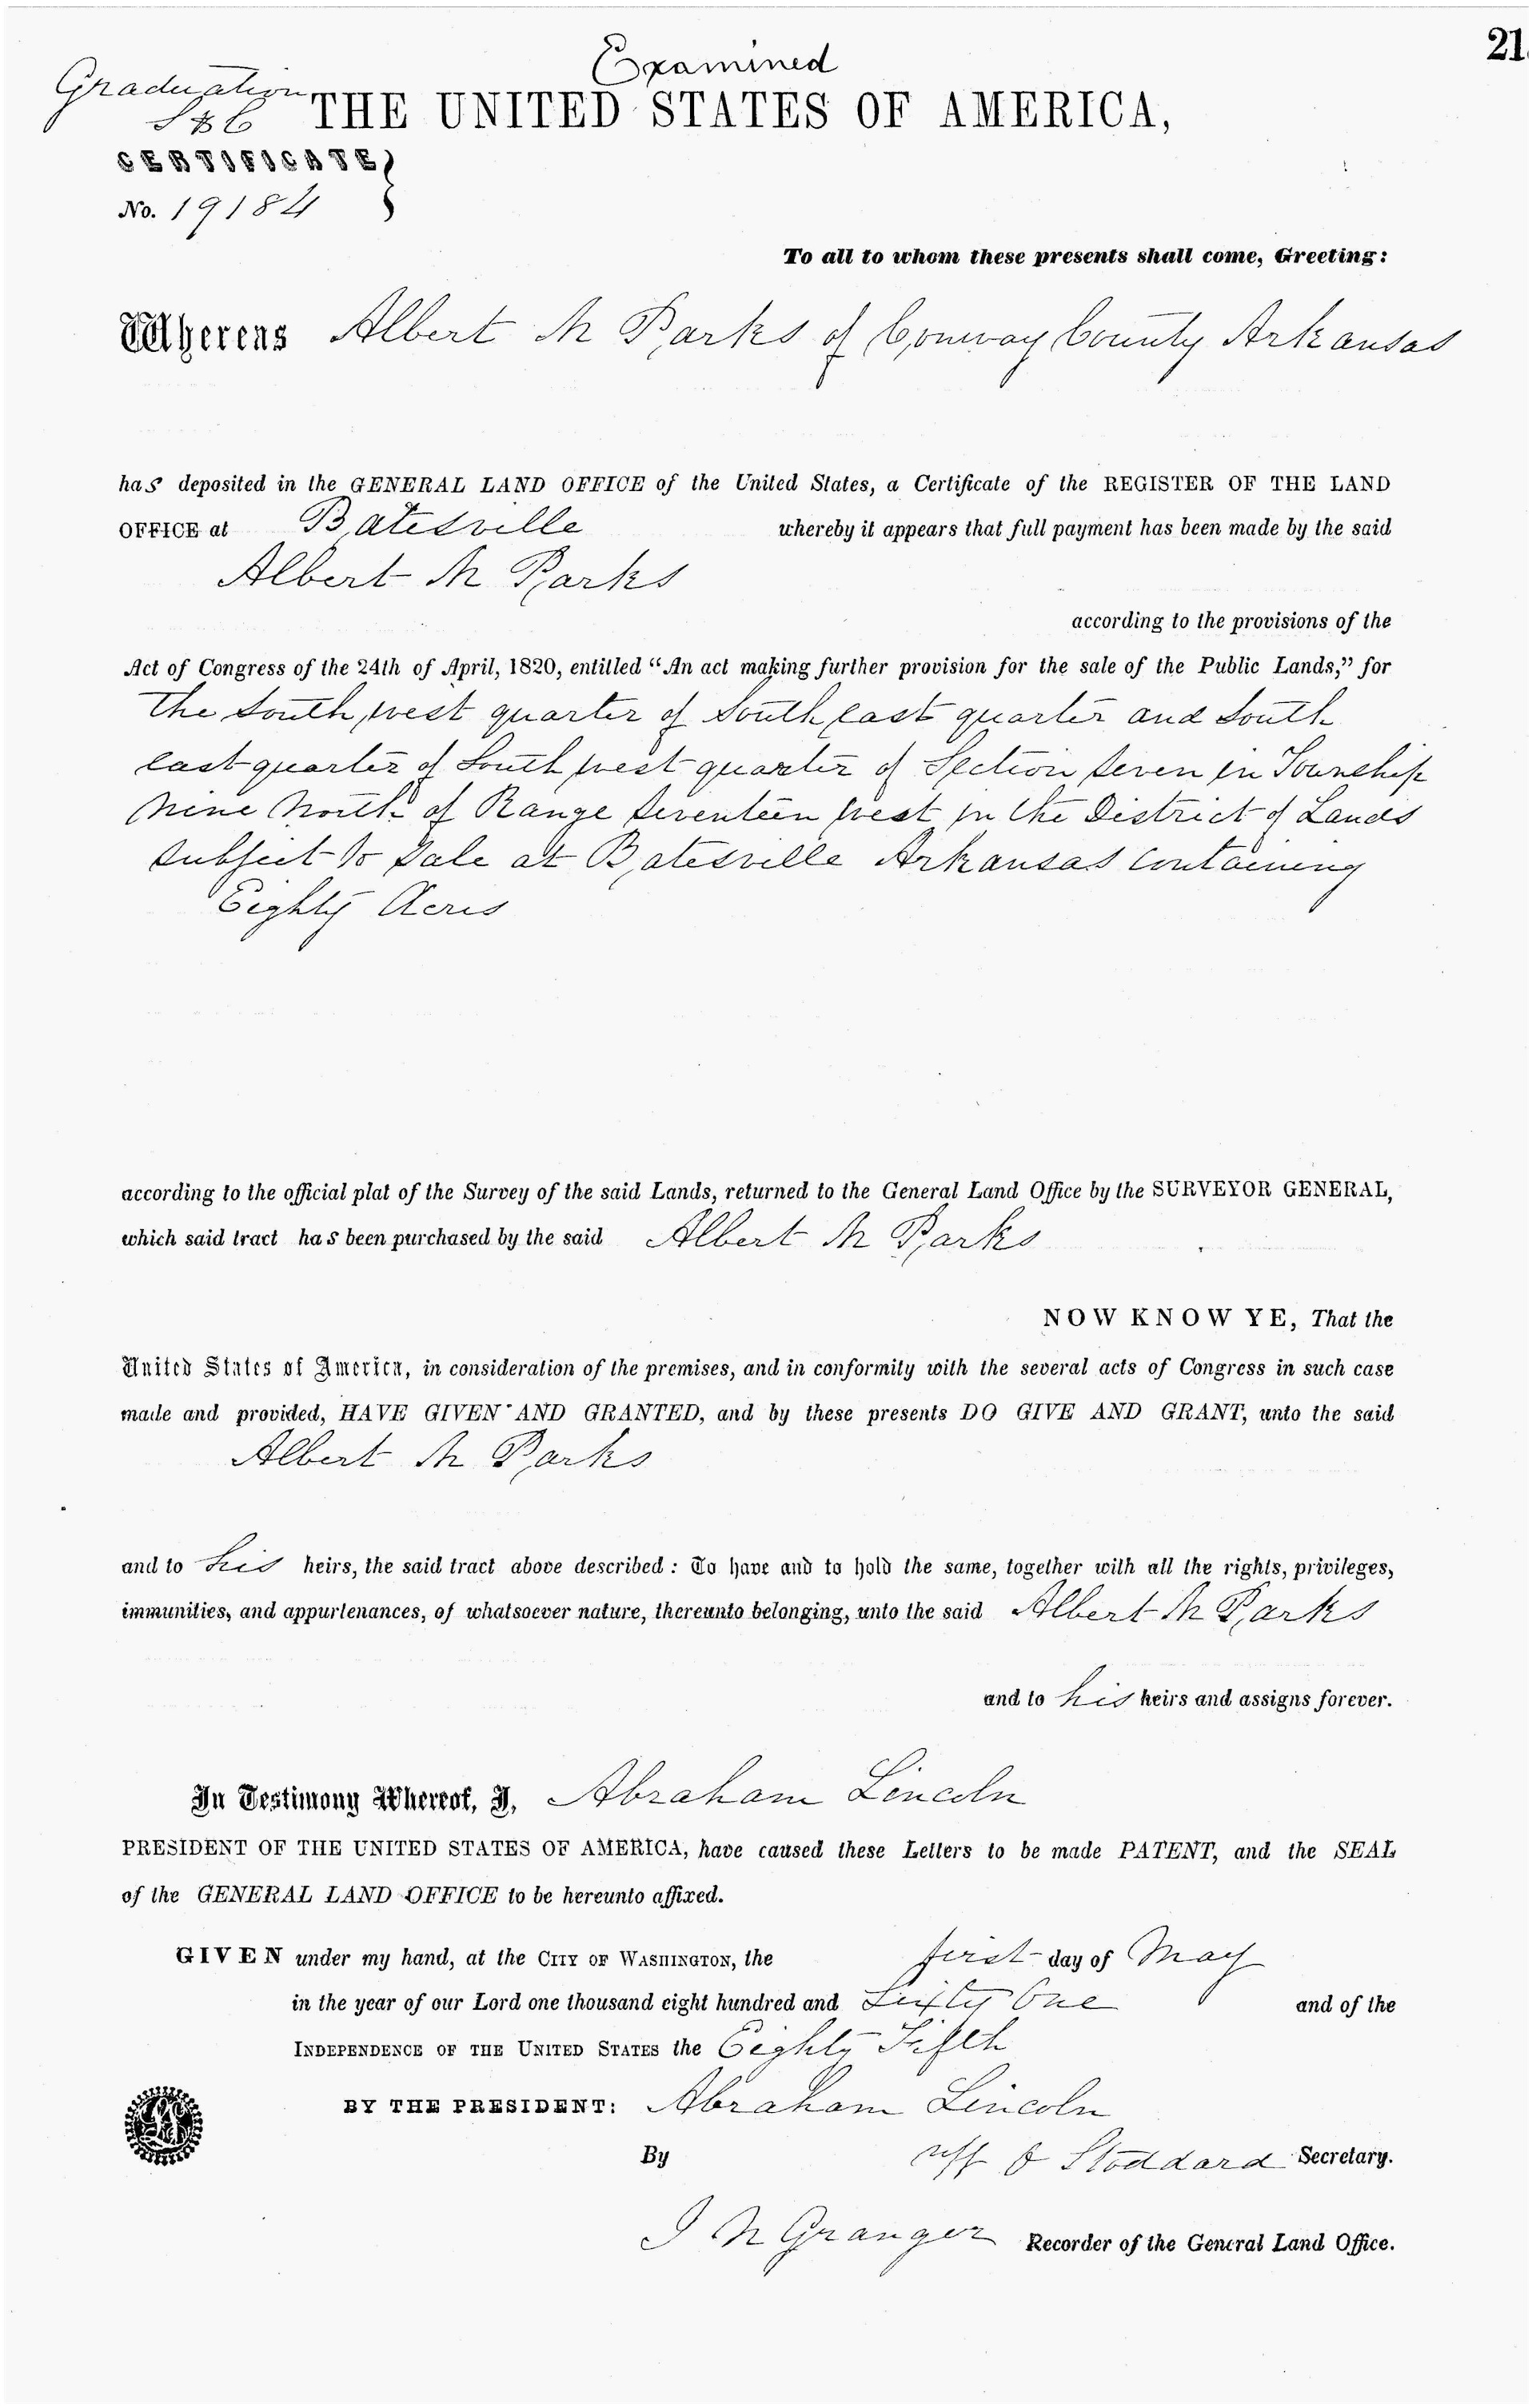 21
Examined
Graduation
S & C
THE UNITED STATES OF AMERICA,
CERTIFICATE
No. 19184
To all to whom these presents shall come, Greeting:
Whereas Albert M Parks of Conway County Arkansas
has deposited in the GENERAL LAND OFFICE of the United States, a Certificate of the REGISTER OF THE LAND
OFFICE at Batesville whereby it appears that full payment has been made by the said
Albert M Parks
according to the provisions of the
Act of Congress of the 24th of April, 1820, entitled “An act making further provision for the sale of the Public Lands,” for
the South west quarter of South east quarter and South
east quarter of South west quarter of Section seven in Township
nine North of Range seventeen west in the District of Lands
subject to Sale at Batesville Arkansas containing
Eighty Acres
according to the official plat of the Survey of the said Lands, returned to the General Land Office by the SURVEYOR GENERAL,
which said tract has been purchased by the said Albert M Parks
NOW KNOW YE, That the
United States of America, in consideration of the premises, and in conformity with the several acts of Congress in such case
made and provided, HAVE GIVEN AND GRANTED, and by these presents DO GIVE AND GRANT, unto the said
Albert M Parks
and to his heirs, the said tract above described: To have and to hold the same, together with all the rights, privileges,
immunities, and appurtenances, of whatsoever nature, thereunto belonging, unto the said Albert M Parks
and to his heirs and assigns forever.
In Testimony Whereof, I, Abraham Lincoln
PRESIDENT OF THE UNITED STATES OF AMERICA, have caused these Letters to be made PATENT, and the SEAL
of the GENERAL LAND OFFICE to be hereunto affixed.
GIVEN under my hand, at the CITY OF WASHINGTON, the first day of May
in the year of our Lord one thousand eight hundred and Sixty One and of the
INDEPENDENCE OF THE UNITED STATES the Eighty Fifth
BY THE PRESIDENT: Abraham Lincoln
By Stoddard Secretary.
I N Granger Recorder of the General Land Office.